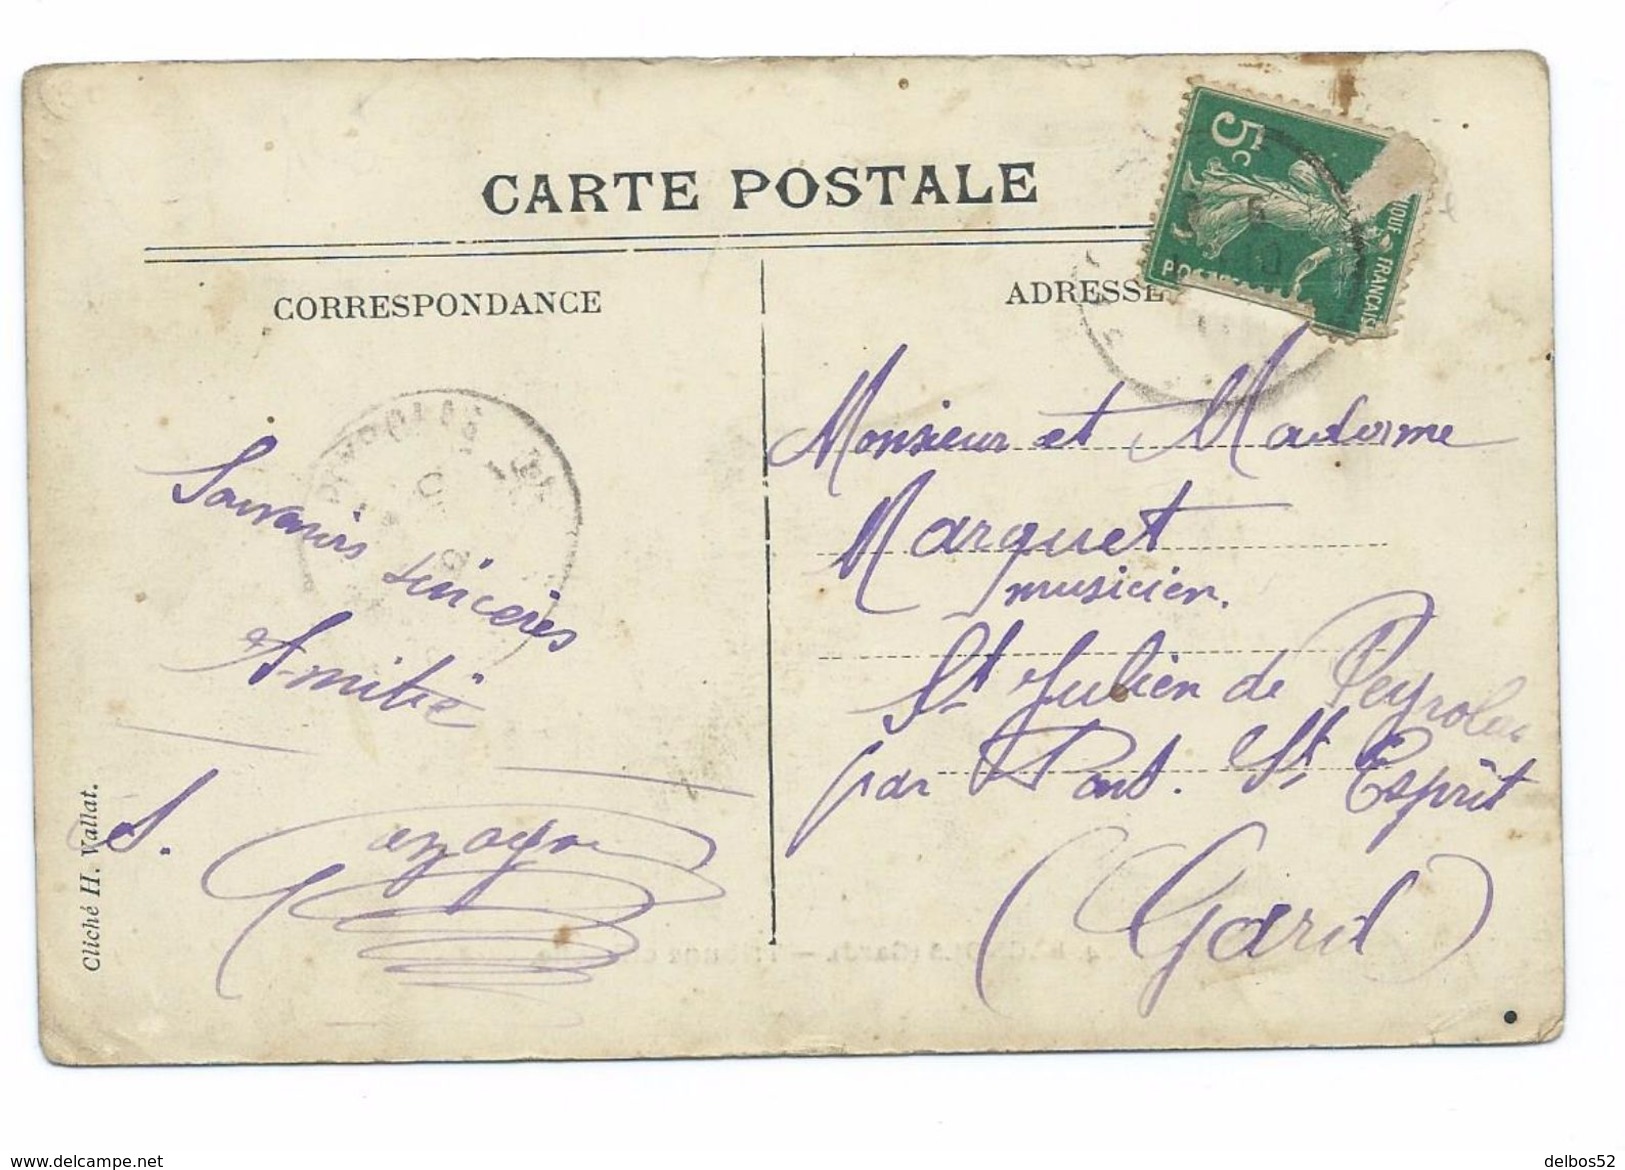 CARTE POSTALE
CORRESPONDANCE
ADRESSE
5c
POSTES
RÉPUBLIQUE FRANÇAISE
Souvenirs sincères
Amitié
S.
Cliché H. Vallat.
Monsieur et Madame
Marquet
musicien.
St Julien de Peyrolas
par Pont. St Esprit
(Gard)
www.delcampe.net
delbos52